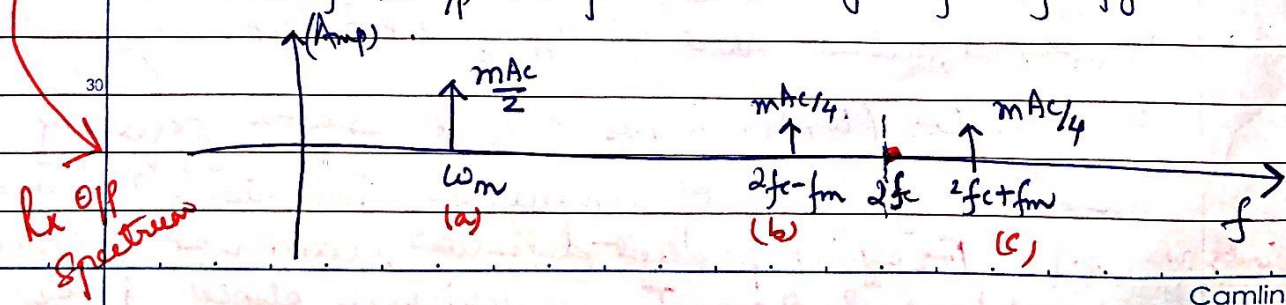 (Amp)
30
mAc/2
mAc/4.
mAc/4
ωm
2fc-fm
2fc
2fc+fm
(a)
(b)
(c)
f
Rx O/P
Spectrum
Camlin